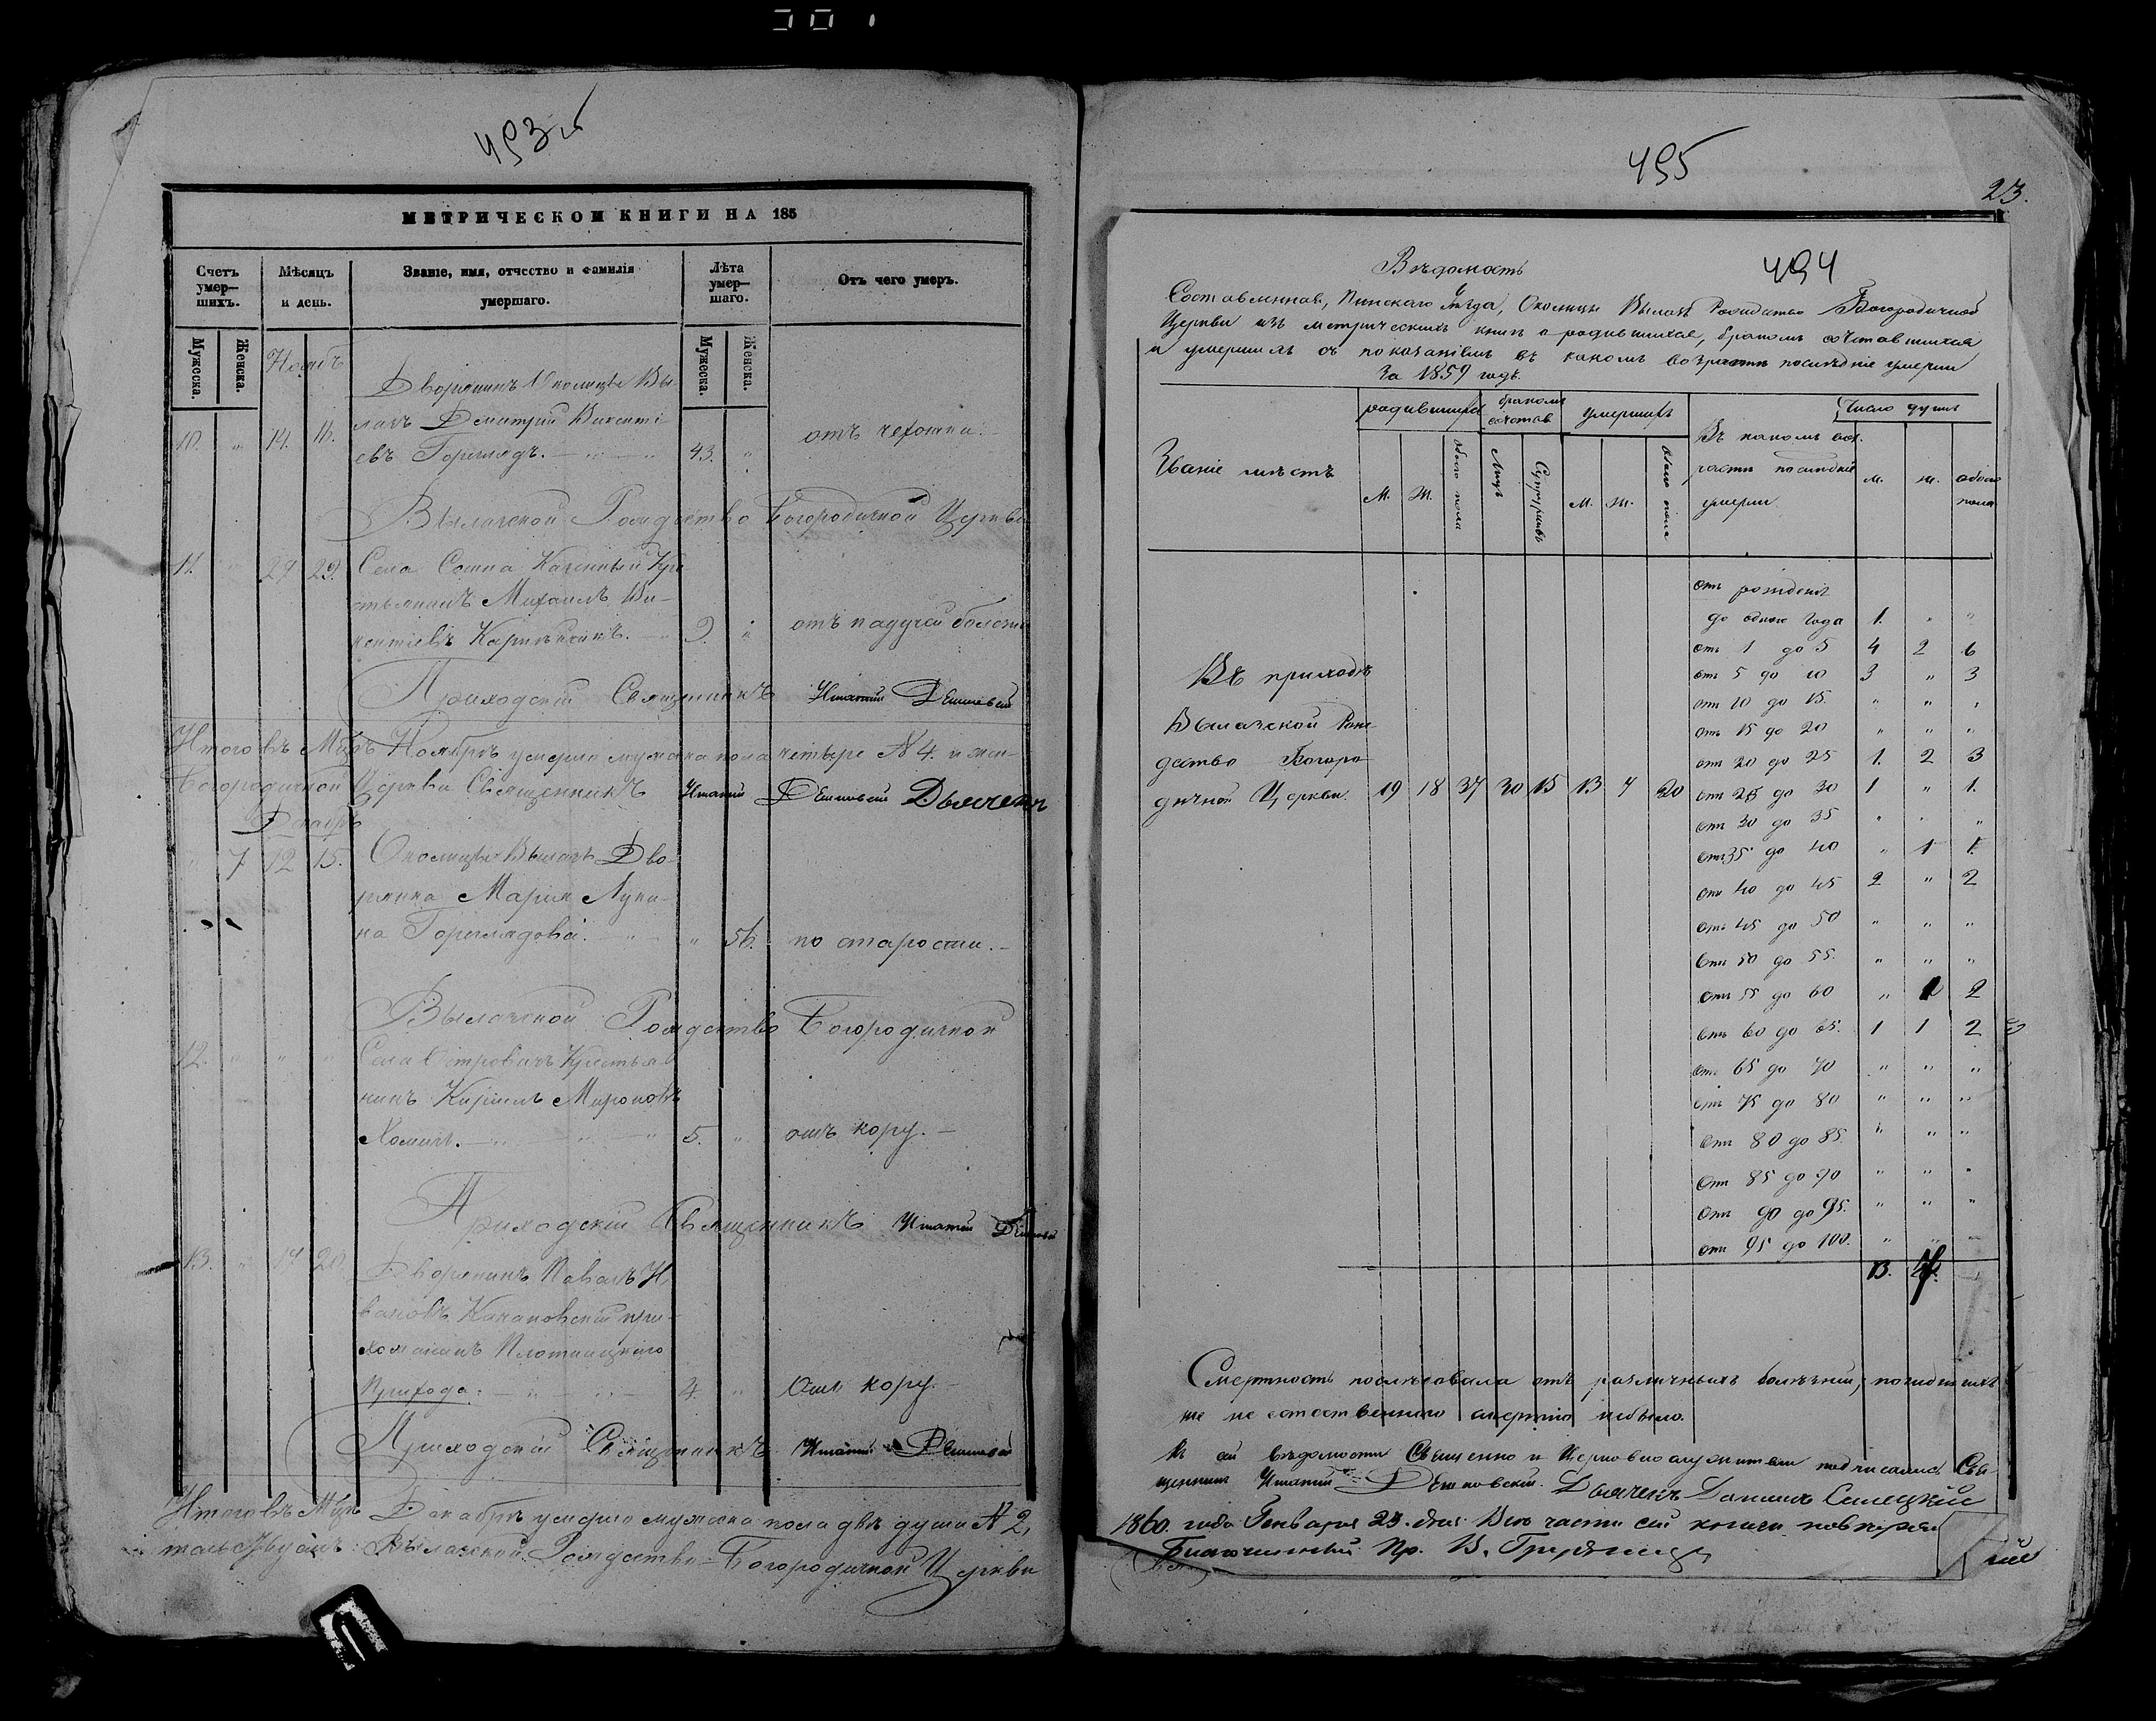 493 об
МЕТРИЧЕСКОЙ КНИГИ НА 185
Счетъ умер-шихъ.
Мѣсяцъ и день.
Званіе, имя, отчество и фамилія умершаго.
Лѣта умер-шаго.
Отъ чего умеръ.
Мужеска.
Женска.
Мужеска.
Женска.
Ноябр
Дворянинъ Околицы Вы-
лазъ Дмитрій Викенті-
10. " 14. 16. евъ Горегладъ. 43. " отъ чехотки.
Вылазской Рождество Богородичной Церкви
11. " 27 29. Села Сошна Казенный Кре-
стьянинъ Михаилъ Ви-
кентіевъ 9. " отъ падучей болезни
Приходскій Священникъ Игнатій
Итого въ Мцѣ Ноябрѣ умерло мужска пола четыре № 4. и жен-
Богородичной Церкви Священникъ Игнатій Дьячекъ
Декабрь
" 7 12 15. Околицы Вылазъ Дво-
рянка Марія Луки-
на Горегладова. " 56. по старости.
Вылазской Рождество Богородичной
12. " " " Села Островичъ Крестья-
нинъ Кирилъ Мироновъ
Хомичъ. 5. " отъ кору.
Приходскій Священникъ Игнатій
13. " 17 20 Дворянинъ Павелъ И-
вановъ Качановскій при-
хожанинъ Плотницкаго
Прихода. 4. " Отъ кору.
Приходскій Священникъ Игнатій
Итого въ Мцѣ Декабрѣ умерло мужска пола двѣ души № 2,
Вылазской Рождество-Богородичной Церкви
495
23.
494
Вѣдомость
Составленная, Пинскаго уѣзда, Околицы Вылазъ Рождество Богородичной
Церкви изъ метрическихъ книгъ о родившихся, бракомъ сочетавшихся
и умершихъ съ показаніемъ въ какомъ возрастѣ послѣдніе умерли
За 1859 годъ.
Званіе мѣстъ
родившихся
бракомъ сочетав
умершихъ
Въ какомъ воз-
растѣ послѣдніе
умерли
Число душъ
М. Ж. обоего пола
Лицъ
Супружествъ
М. Ж. обоего пола
м. ж. обоего пола
отъ рожденія
до одного года 1. " "
отъ 1 до 5 4 2 6
Въ приходѣ
отъ 5 до 10 3 " 3
отъ 10 до 15. " " "
Вылазской Рож-
отъ 15 до 20 " " "
дество Богоро-
отъ 20 до 25 1. 2 3
дичной Церкви. 19 18 37 30 15 13 7 20
отъ 25 до 30 1 " 1.
отъ 30 до 35 " " "
отъ 35 до 40 " 1 1.
отъ 40 до 45 2 " 2
отъ 45 до 50 " " "
отъ 50 до 55. " " "
отъ 55 до 60 " 1 2
отъ 60 до 65. 1 1 2
отъ 65 до 70 " " "
отъ 75 до 80 " " "
отъ 80 до 85. " " "
отъ 85 до 90 " " "
отъ 90 до 95. " " "
отъ 95 до 100. " " "
13. 7.
Смертность послѣдовала отъ различныхъ болѣзней, погибшихъ
же не естественною смертію небыло.
Къ сей вѣдомости Священно и Церковнослужители подписались Свя-
щенникъ Игнатій Дьячекъ Даніилъ
1860. года Генваря 23. дня
Благочинный Пр. В.